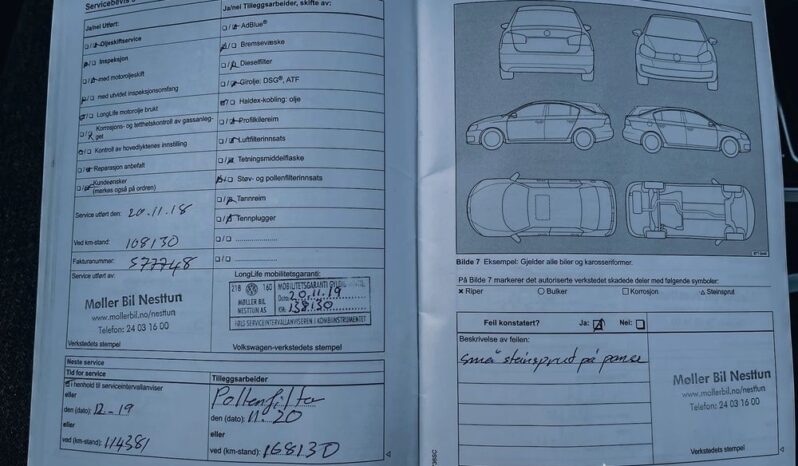 Servicebevis
Ja/nei Utført:
Oljeskiftservice
Inspeksjon
med motoroljeskift
med utvidet inspeksjonsomfang
LongLife motorolje brukt
Korrosjons- og tetthetskontroll av gassanleg-
get
Kontroll av hovedlyktenes innstilling
Reparasjon anbefalt
Kundeønsker
(merkes også på ordren)
Service utført den: 20.11.18
Ved km-stand: 108130
Fakturanummer: 577748
Service utført av:
Møller Bil Nesttun
mollerbil.no/nesttun
Telefon: 24 03 16 00
Verkstedets stempel
Ja/nei Tilleggsarbeider, skifte av:
AdBlue®
Bremsevæske
Dieselfilter
Girolje: DSG®, ATF
Haldex-kobling: olje
Profilkilereim
Luftfilterinnsats
Tetningsmiddelflaske
Støv- og pollenfilterinnsats
Tannreim
Tennplugger
LongLife mobilitetsgaranti:
218 160
MØLLER BIL
NESTTUN AS
MOBILITETSGARANTI GYLDIG
Dato: 20.11.19
KM: 138130
HØLG SERVICEINTERVALLANVISEREN I KOMBIINSTRUMENTET
Volkswagen-verkstedets stempel
Neste service
Tid for service
i henhold til serviceintervallanviser
eller
den (dato): 12-19
eller
ved (km-stand): 114381
Tilleggsarbeider
Pollenfilter
den (dato): 11.20
eller
ved (km-stand): 168130
Bilde 7 Eksempel: Gjelder alle biler og karosseriformer.
På Bilde 7 markerer det autoriserte verkstedet skadede deler med følgende symboler:
× Riper ○ Bulker □ Korrosjon △ Steinsprut
Feil konstatert? Ja: Nei:
Beskrivelse av feilen:
små steinsprut på panse
Møller Bil Nesttun
mollerbil.no/nesttun
Telefon: 24 03 16 00
Verkstedets stempel